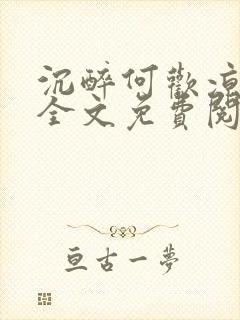 沉醉何歡涼
全文免費閱
亘古一夢